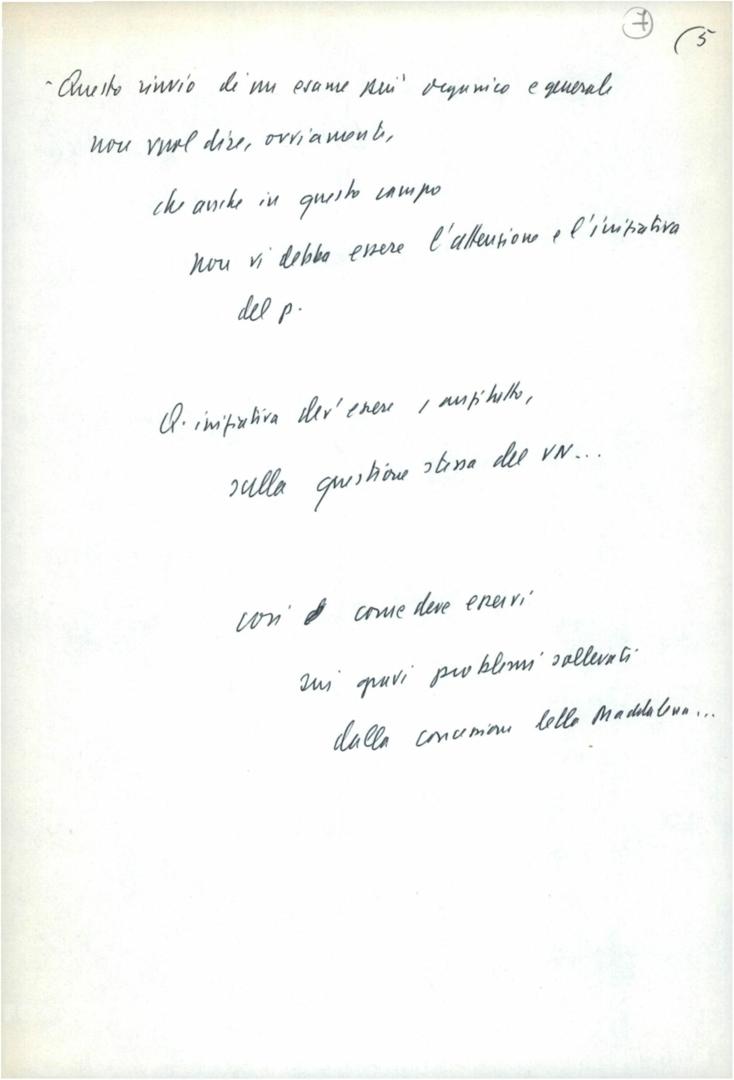 7
(5
- Questo rinvio di un esame più organico e generale
non vuol dire, ovviamente,
che anche in questo campo
non vi debba essere l'attenzione e l'iniziativa
del p.
Q. iniziativa dev'essere, anzitutto,
sulla questione stessa del VN...
così come deve esservi
sui gravi problemi sollevati
dalla concessione della Maddalena...